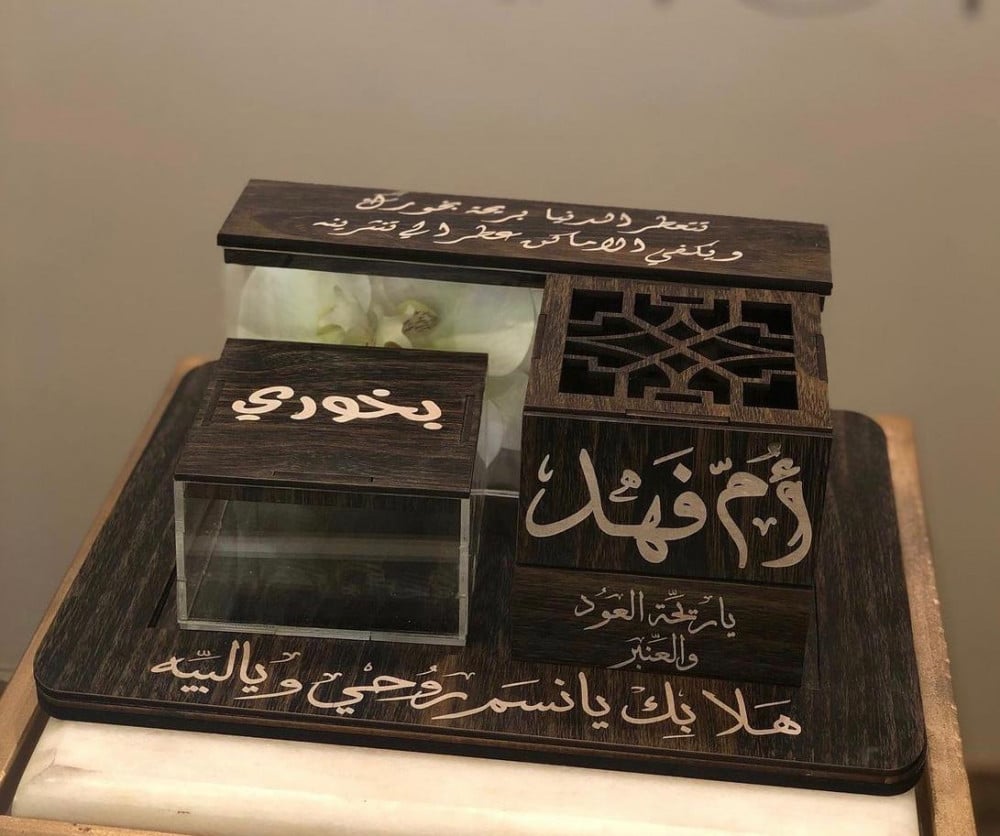 تتعطر الدنيا بريحة بخورك
ويكفي الاماكن عطر الي تنثرينه
بخوري
أُمّ فَهَد
ياريحَّة العوُد
والعَنّبر
هَلا بِك يانسَم رَوُحيِ وياليَّيه